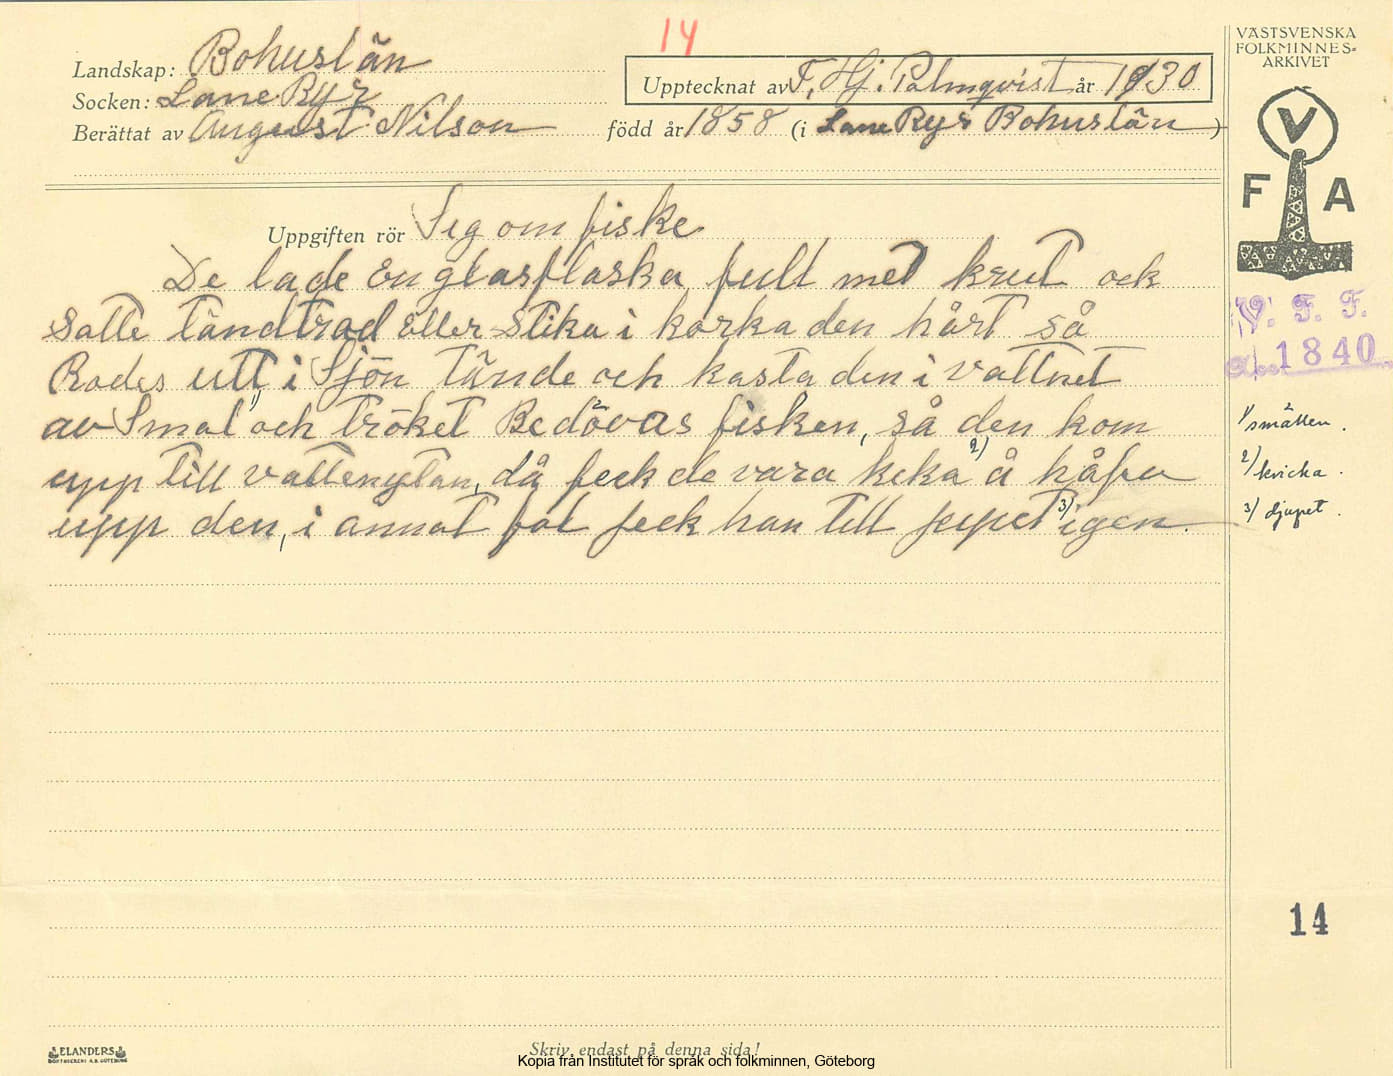 14
VÄSTSVENSKA
FOLKMINNES-
ARKIVET
Landskap: Bohuslän
Upptecknat av F. Hj. Palmqvist år 1930
Socken: Lane Ryr
Berättat av August Nilson född år 1858 (i Lane Ryr Bohuslän)
V
F A
Uppgiften rör Seg om fiske
De lade en glasflaska fult med krut ock
Satte tändtrad eller stika i korka den hårt så
Rodes utt, i Sjön tände och kasta den i vattnet
av Smal 1) och tröket Bedövas fisken, så den kom
upp till vattenytan, då feck de vara keka 2) å håfva
upp den, i annat fal feck han till jupet 3) igen.
V. F. F.
a. 1840
1) smällen.
2) kvicka.
3) djupet.
14
ELANDERS
BOKTRYCKERI A.B. GÖTEBORG
Skriv endast på denna sida!
Kopia från Institutet för språk och folkminnen, Göteborg